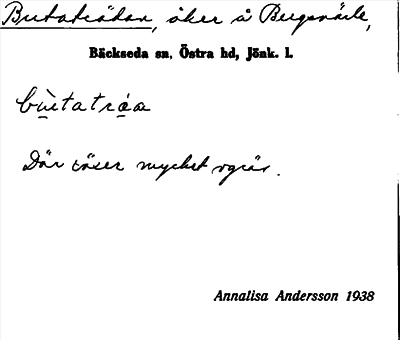 Butaträdan, åker å Bergsnärle,
Bäckseda sn, Östra hd, Jönk. l.
bu̲taträ̲a
Där växer mycket ogräs.
Annalisa Andersson 1938